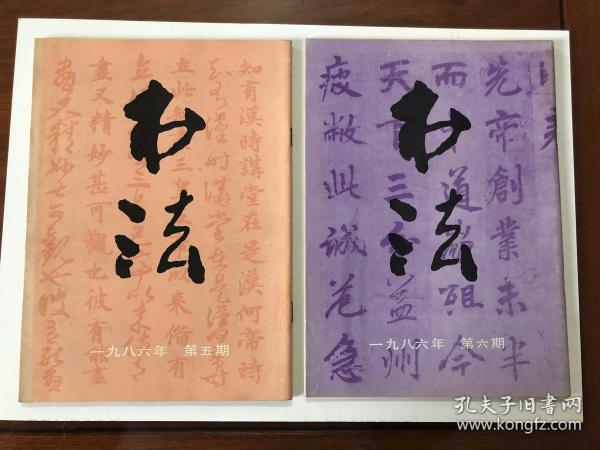 书法
知有漢時講堂在是漢何帝時
畫又精妙甚可觀也彼有
一九八六年 第五期
书法
先帝創業未半
而中道崩殂今
天下三分益州
疲敝此誠危急
一九八六年 第六期
孔夫子旧书网
www.kongfz.com